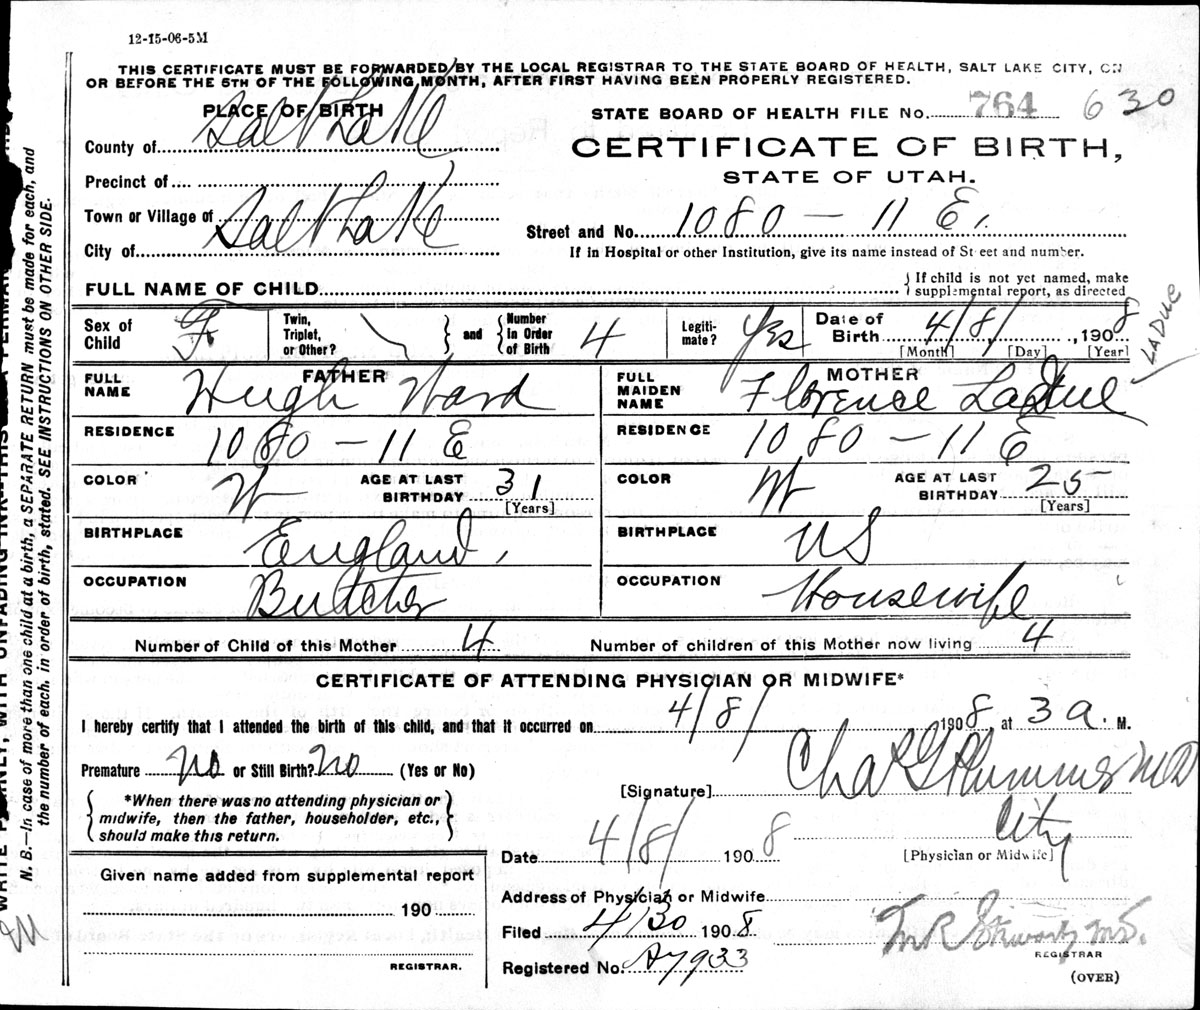 12-15-06-5M
THIS CERTIFICATE MUST BE FORWARDED BY THE LOCAL REGISTRAR TO THE STATE BOARD OF HEALTH, SALT LAKE CITY, ON
OR BEFORE THE 5TH OF THE FOLLOWING MONTH, AFTER FIRST HAVING BEEN PROPERLY REGISTERED.
PLACE OF BIRTH
County of Salt Lake
Precinct of
Town or Village of Salt Lake
City of
STATE BOARD OF HEALTH FILE No. 764 630
CERTIFICATE OF BIRTH,
STATE OF UTAH.
Street and No. 1080 - 11 E.
If in Hospital or other Institution, give its name instead of Street and number.
FULL NAME OF CHILD
If child is not yet named, make
supplemental report, as directed
Sex of Child F
Twin, Triplet, or Other?
and
Number In Order of Birth 4
Legitimate? Yes
Date of Birth 4/8/, 1908
[Month] [Day] [Year]
LADUE
FATHER
FULL NAME Hugh Ward
RESIDENCE 1080 - 11 E
COLOR W
AGE AT LAST BIRTHDAY 31
[Years]
BIRTHPLACE England
OCCUPATION Butcher
MOTHER
FULL MAIDEN NAME Florence LaDue
RESIDENCE 1080 - 11 E
COLOR W
AGE AT LAST BIRTHDAY 25
[Years]
BIRTHPLACE US
OCCUPATION Housewife
Number of Child of this Mother 4
Number of children of this Mother now living 4
CERTIFICATE OF ATTENDING PHYSICIAN OR MIDWIFE*
I hereby certify that I attended the birth of this child, and that it occurred on 4/8/ 1908, at 3 a. M.
Premature no or Still Birth? no (Yes or No)
*When there was no attending physician or
midwife, then the father, householder, etc.,
should make this return.
[Signature] Chas G Plummer MD
City
[Physician or Midwife]
Date 4/8/ 1908
Given name added from supplemental report
190
REGISTRAR.
Address of Physician or Midwife
Filed 4/30 1908
Registered No. 933
REGISTRAR
(OVER)
N. B.—In case of more than one child at a birth, a SEPARATE RETURN must be made for each, and
the number of each, in order of birth, stated. SEE INSTRUCTIONS ON OTHER SIDE.
WITH UNFADING INK—THIS